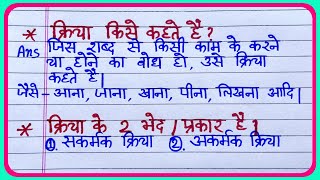 * क्रिया किसे कहते है?
Ans जिस शब्द से किसी काम के करने
या होने का बोध हो, उसे क्रिया
कहते है।
जैसे - आना, जाना, खाना, पीना, लिखना आदि।
* क्रिया के 2 भेद / प्रकार है?
① सकर्मक क्रिया ② अकर्मक क्रिया